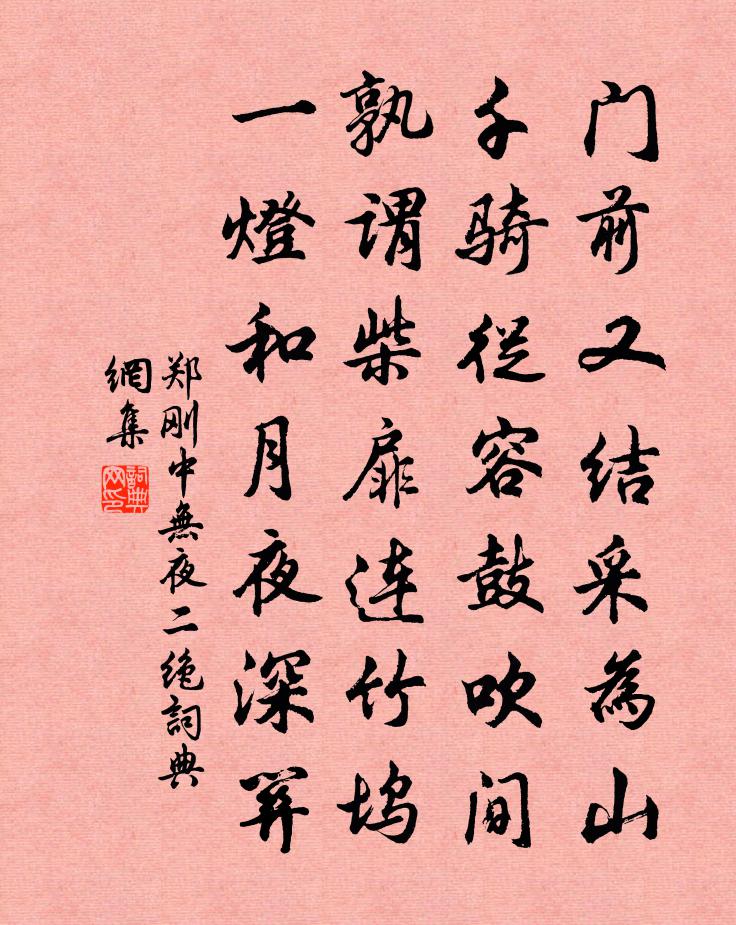 门前又结采为山
千骑从容鼓吹间
孰谓柴扉连竹坞
一燈和月夜深关
郑刚中無夜二绝词典
網集
詞典網印